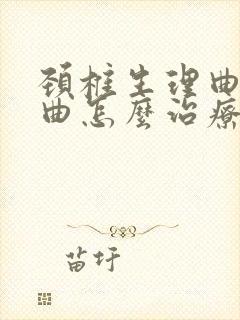 颈椎生理曲
曲怎麼治療
苗圩